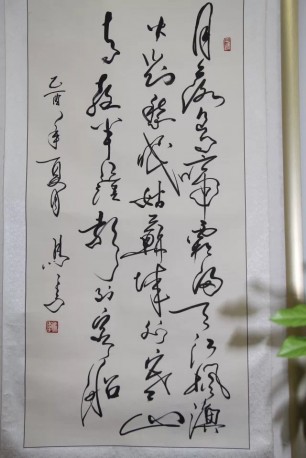 月落烏啼霜滿天江楓漁
火對愁眠姑蘇城外寒山
寺夜半鐘聲到客船
乙酉年夏月